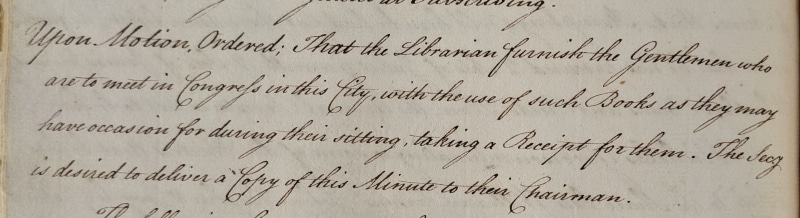 Subscribing.
Upon Motion, Ordered; That the Librarian furnish the Gentlemen who
are to meet in Congreſs in this City, with the use of such Books as they may
have occasion for during their sitting, taking a Receipt for them. The Secy
is desired to deliver a Copy of this Minute to their Chairman.